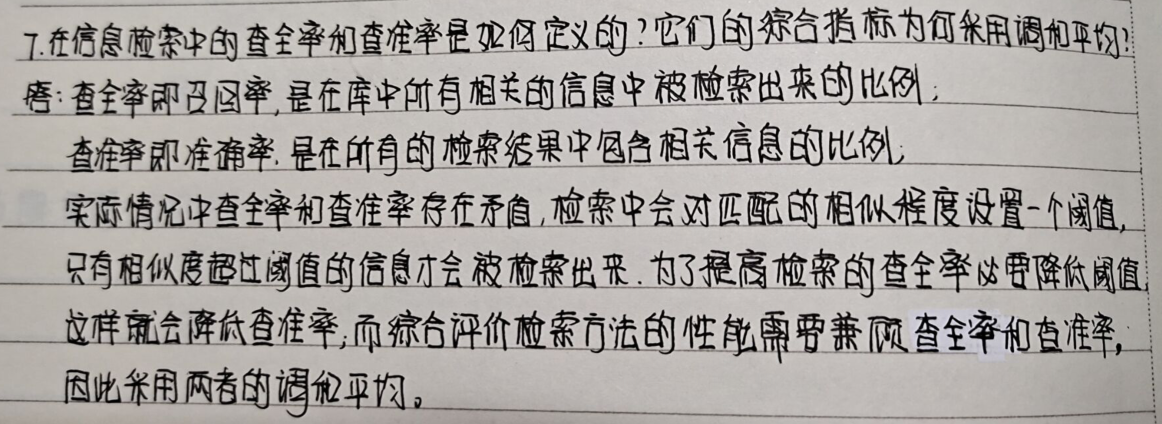 7.在信息检索中的查全率和查准率是如何定义的?它们的综合指标为何采用调和平均?
答:查全率即召回率,是在库中所有相关的信息中被检索出来的比例;
查准率即准确率.是在所有的检索结果中包含相关信息的比例;
实际情况中查全率和查准率存在矛盾,检索中会对匹配的相似程度设置一个阈值,
只有相似度超过阈值的信息才会被检索出来.为了提高检索的查全率必要降低阈值,
这样就会降低查准率;而综合评价检索方法的性能需要兼顾查全率和查准率,
因此采用两者的调和平均。